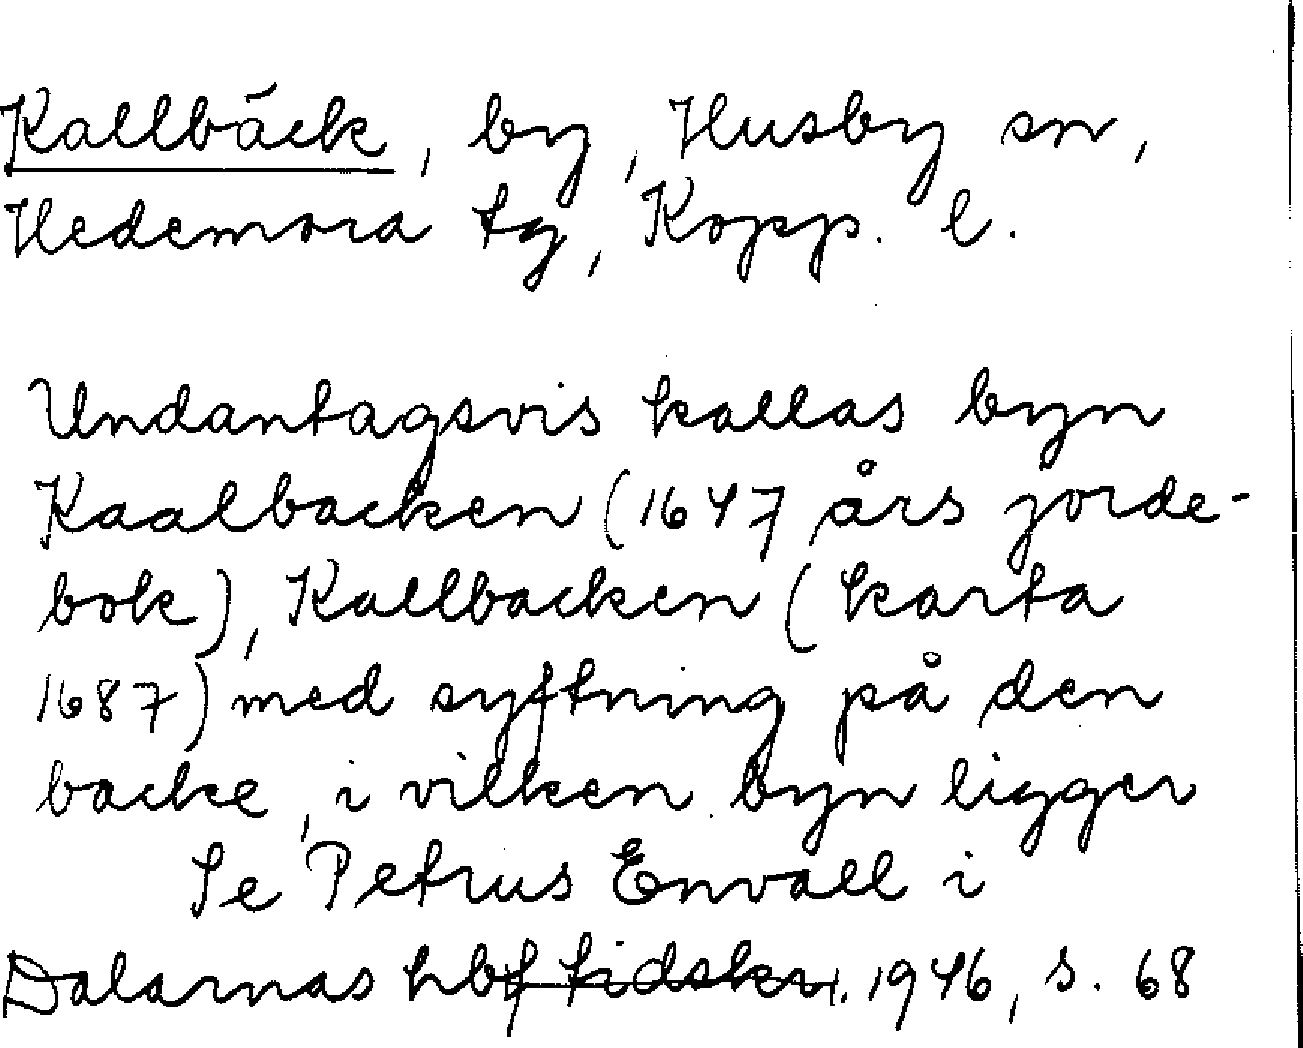 Kallbäck, by, Husby sn,
Hedemora tg, Kopp. l.
Undantagsvis kallas byn
Kaalbacken (1647 års jorde-
bok), Kallbacken (karta
1687) med syftning på den
backe, i vilken byn ligger
Se Petrus Envall i
Dalarnas hbf tidskr. 1946, s. 68